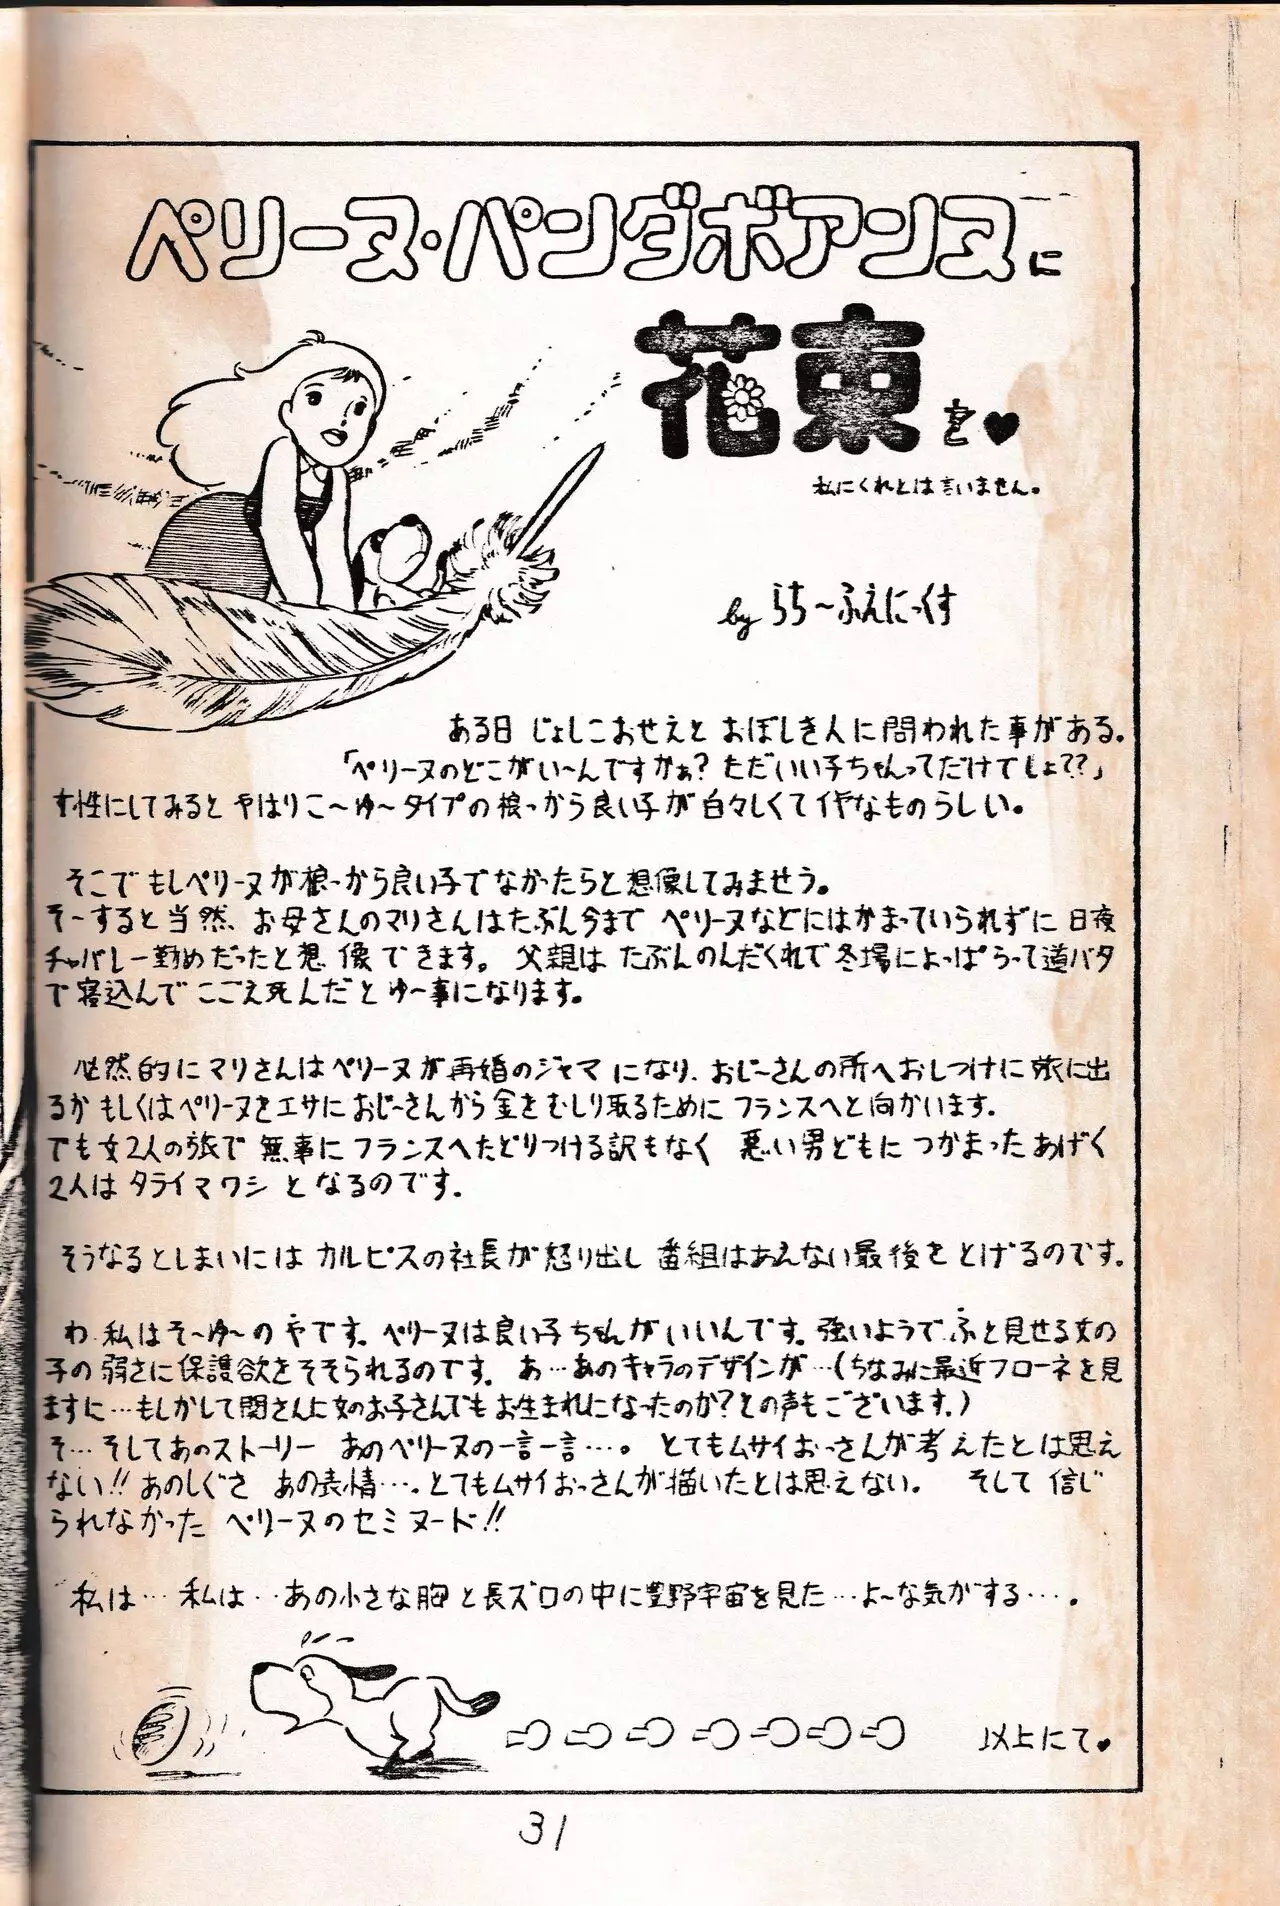 ペリーヌ・パンダボアンヌに
花束を♥
私にくれとは言いません。
by らち〜ふえにっくす
ある日 じょしこおせえと おぼしき人に問われた事がある。
「ペリーヌのどこがい〜んですかぁ？ただいい子ちゃんってだけでしょ??」
す性にしてみると やはりこ〜ゆ〜タイプの根っから良い子が白々しくてイヤなものらしい。
そこでもしペリーヌが根っから良い子でなかったらと想像してみませう。
そーすると当然、お母さんのマリさんはたぶん今まで ペリーヌなどにはかまっていられずに 日夜
チャバレー勤めだったと想像できます。父親は たぶんのんだくれで冬場によっぱらって道バタ
で寝込んで こごえ死んだと ゆ〜事になります。
必然的にマリさんはペリーヌが再婚のジャマになり、おじ〜さんの所へおしつけに旅に出
るか もしくはペリーヌをエサにおじ〜さんから金をむしり取るために フランスへと向かいます.
でも女2人の旅で無事にフランスへたどりつける訳もなく 悪い男どもに つかまったあげく
2人は タライマワシ となるのです.
そうなるとしまいには カルピスの社長が怒り出し 番組はあえない最後を とげるのです.
わ.私はそ〜ゆ〜の やです。ペリーヌは良い子ちゃんがいいんです. 強いようで ふと見せる女の
子の弱さに保護欲をそそられるのです。あ…あのキャラのデザインが…(ちなみに最近フローネを見
ますに…もしかして関さんに女のお子さんでもお生まれになったのか？との声もございます.)
そ…そしてあのストーリー あのペリーヌの一言一言…。とてもムサイおっさんが考えたとは思え
ない!!あのしぐさ あの表情….とてもムサイおっさんが描いたとは思えない。 そして 信じ
られなかった ペリーヌのセミヌード!!
私は…私は‥あの小さな胸と長ズロの中に豊野宇宙を見た…よ〜な気がする….
以上にて♥
31